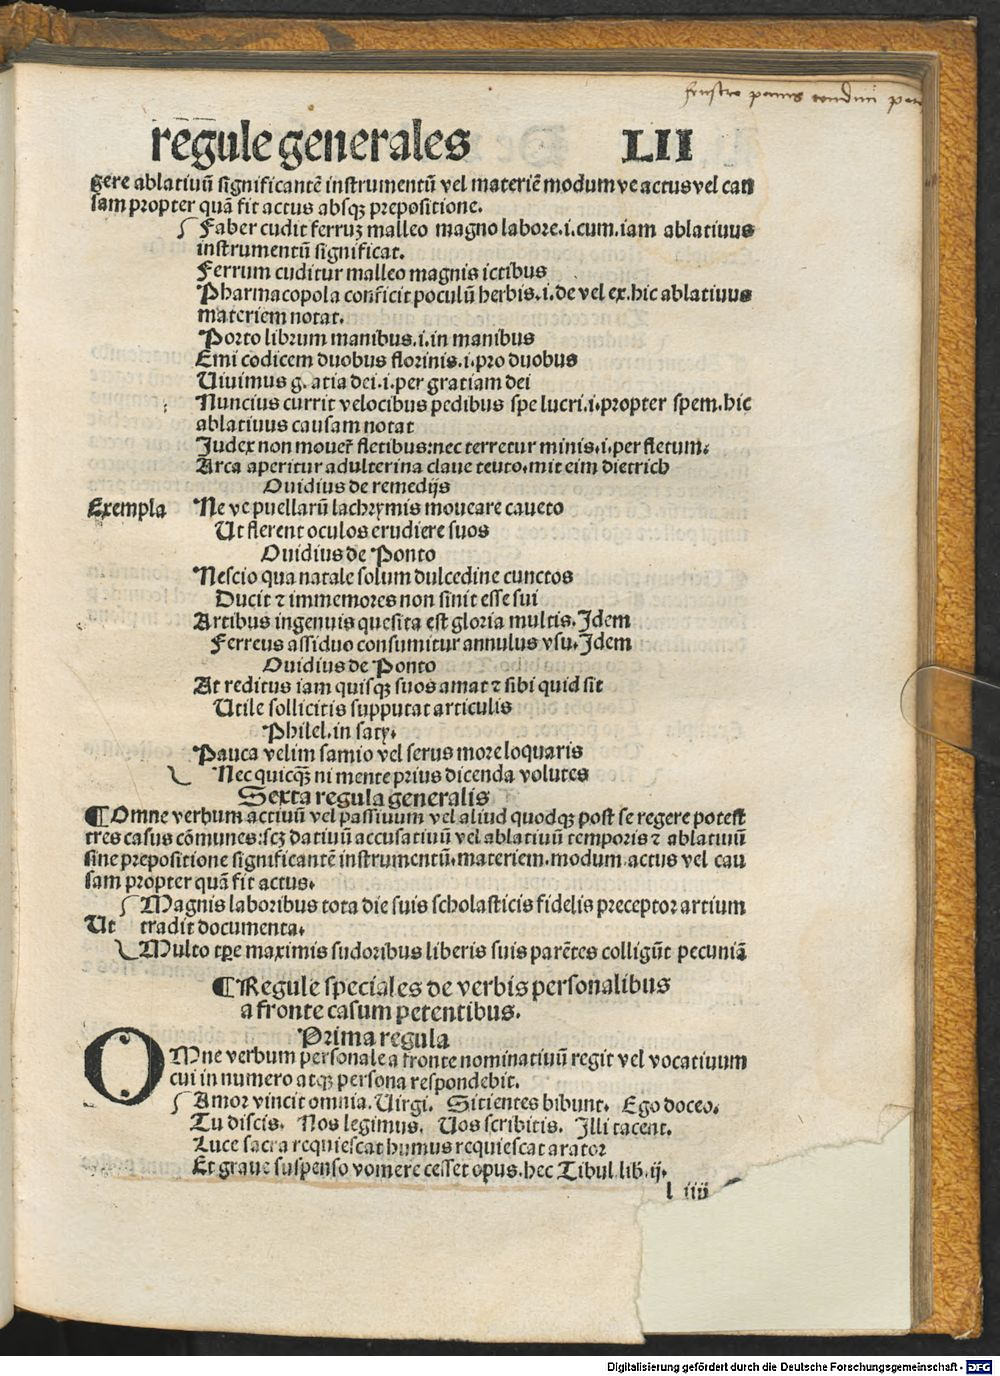 regule generales LII
gere ablatiuū significantē instrumentū vel materiē modum ve actus vel cau
sam propter quā fit actus absqꝫ prepositione.
Faber cudit ferruꝫ malleo magno labore.i.cum.iam ablatiuus
instrumentū significat.
Ferrum cuditur malleo magnis ictibus
Pharmacopola conficit poculū herbis.i.de vel ex.hic ablatiuus
materiem notat.
Porto librum manibus.i.in manibus
Emi codicem duobus florinis.i.pro duobus
Uiuimus g. atia dei.i.per gratiam dei
Nuncius currit velocibus pedibus spe lucri.i.propter spem.hic
ablatiuus causam notat
Judex non mouet᷑ fletibus:nec terretur minis.i.per fletum.
Arca aperitur adulterina claue teuto.mit eim dietrich
Ouidius de remedijs
Exempla Ne ve puellarū lachrymis moueare caueto
Ut flerent oculos erudiere suos
Ouidius de Ponto
Nescio qua natale solum dulcedine cunctos
Ducit ⁊ immemores non sinit esse sui
Artibus ingenuis quesita est gloria multis.Idem
Ferreus assiduo consumitur annulus vsu.Idem
Ouidius de Ponto
At reditus iam quisqꝫ suos amat ⁊ sibi quid sit
Utile sollicitis supputat articulis
Philel.in saty.
Pauca velim samio vel serus more loquaris
Nec quicqꝫ ni mente prius dicenda volutes
Sexta regula generalis
¶Omne verbum actiuū vel passiuum vel aliud quodqꝫ post se regere potest
tres casus cōmunes:scꝫ datiuū accusatiuū vel ablatiuū temporis ⁊ ablatiuū
sine prepositione significantē instrumentū.materiem.modum actus vel cau
sam propter quā fit actus.
Magnis laboribus tota die suis scholasticis fidelis preceptor artium
Ut tradit documenta.
Multo tꝑe maximis sudoribus liberis suis parētes colligūt pecuniā
¶Regule speciales de verbis personalibus
a fronte casum petentibus.
Prima regula
OMne verbum personale a fronte nominatiuū regit vel vocatiuum
cui in numero atqꝫ persona respondebit.
Amor vincit omnia.Uirgi. Sitientes bibunt. Ego doceo.
Tu discis. Nos legimus. Uos scribitis. Illi tacent.
Luce sacra requiescat humus requiescat arator
Et graue suspenso vomere cesset opus.hec Tibul lib.ij.
l iiij
Digitalisierung gefördert durch die Deutsche Forschungsgemeinschaft - DFG